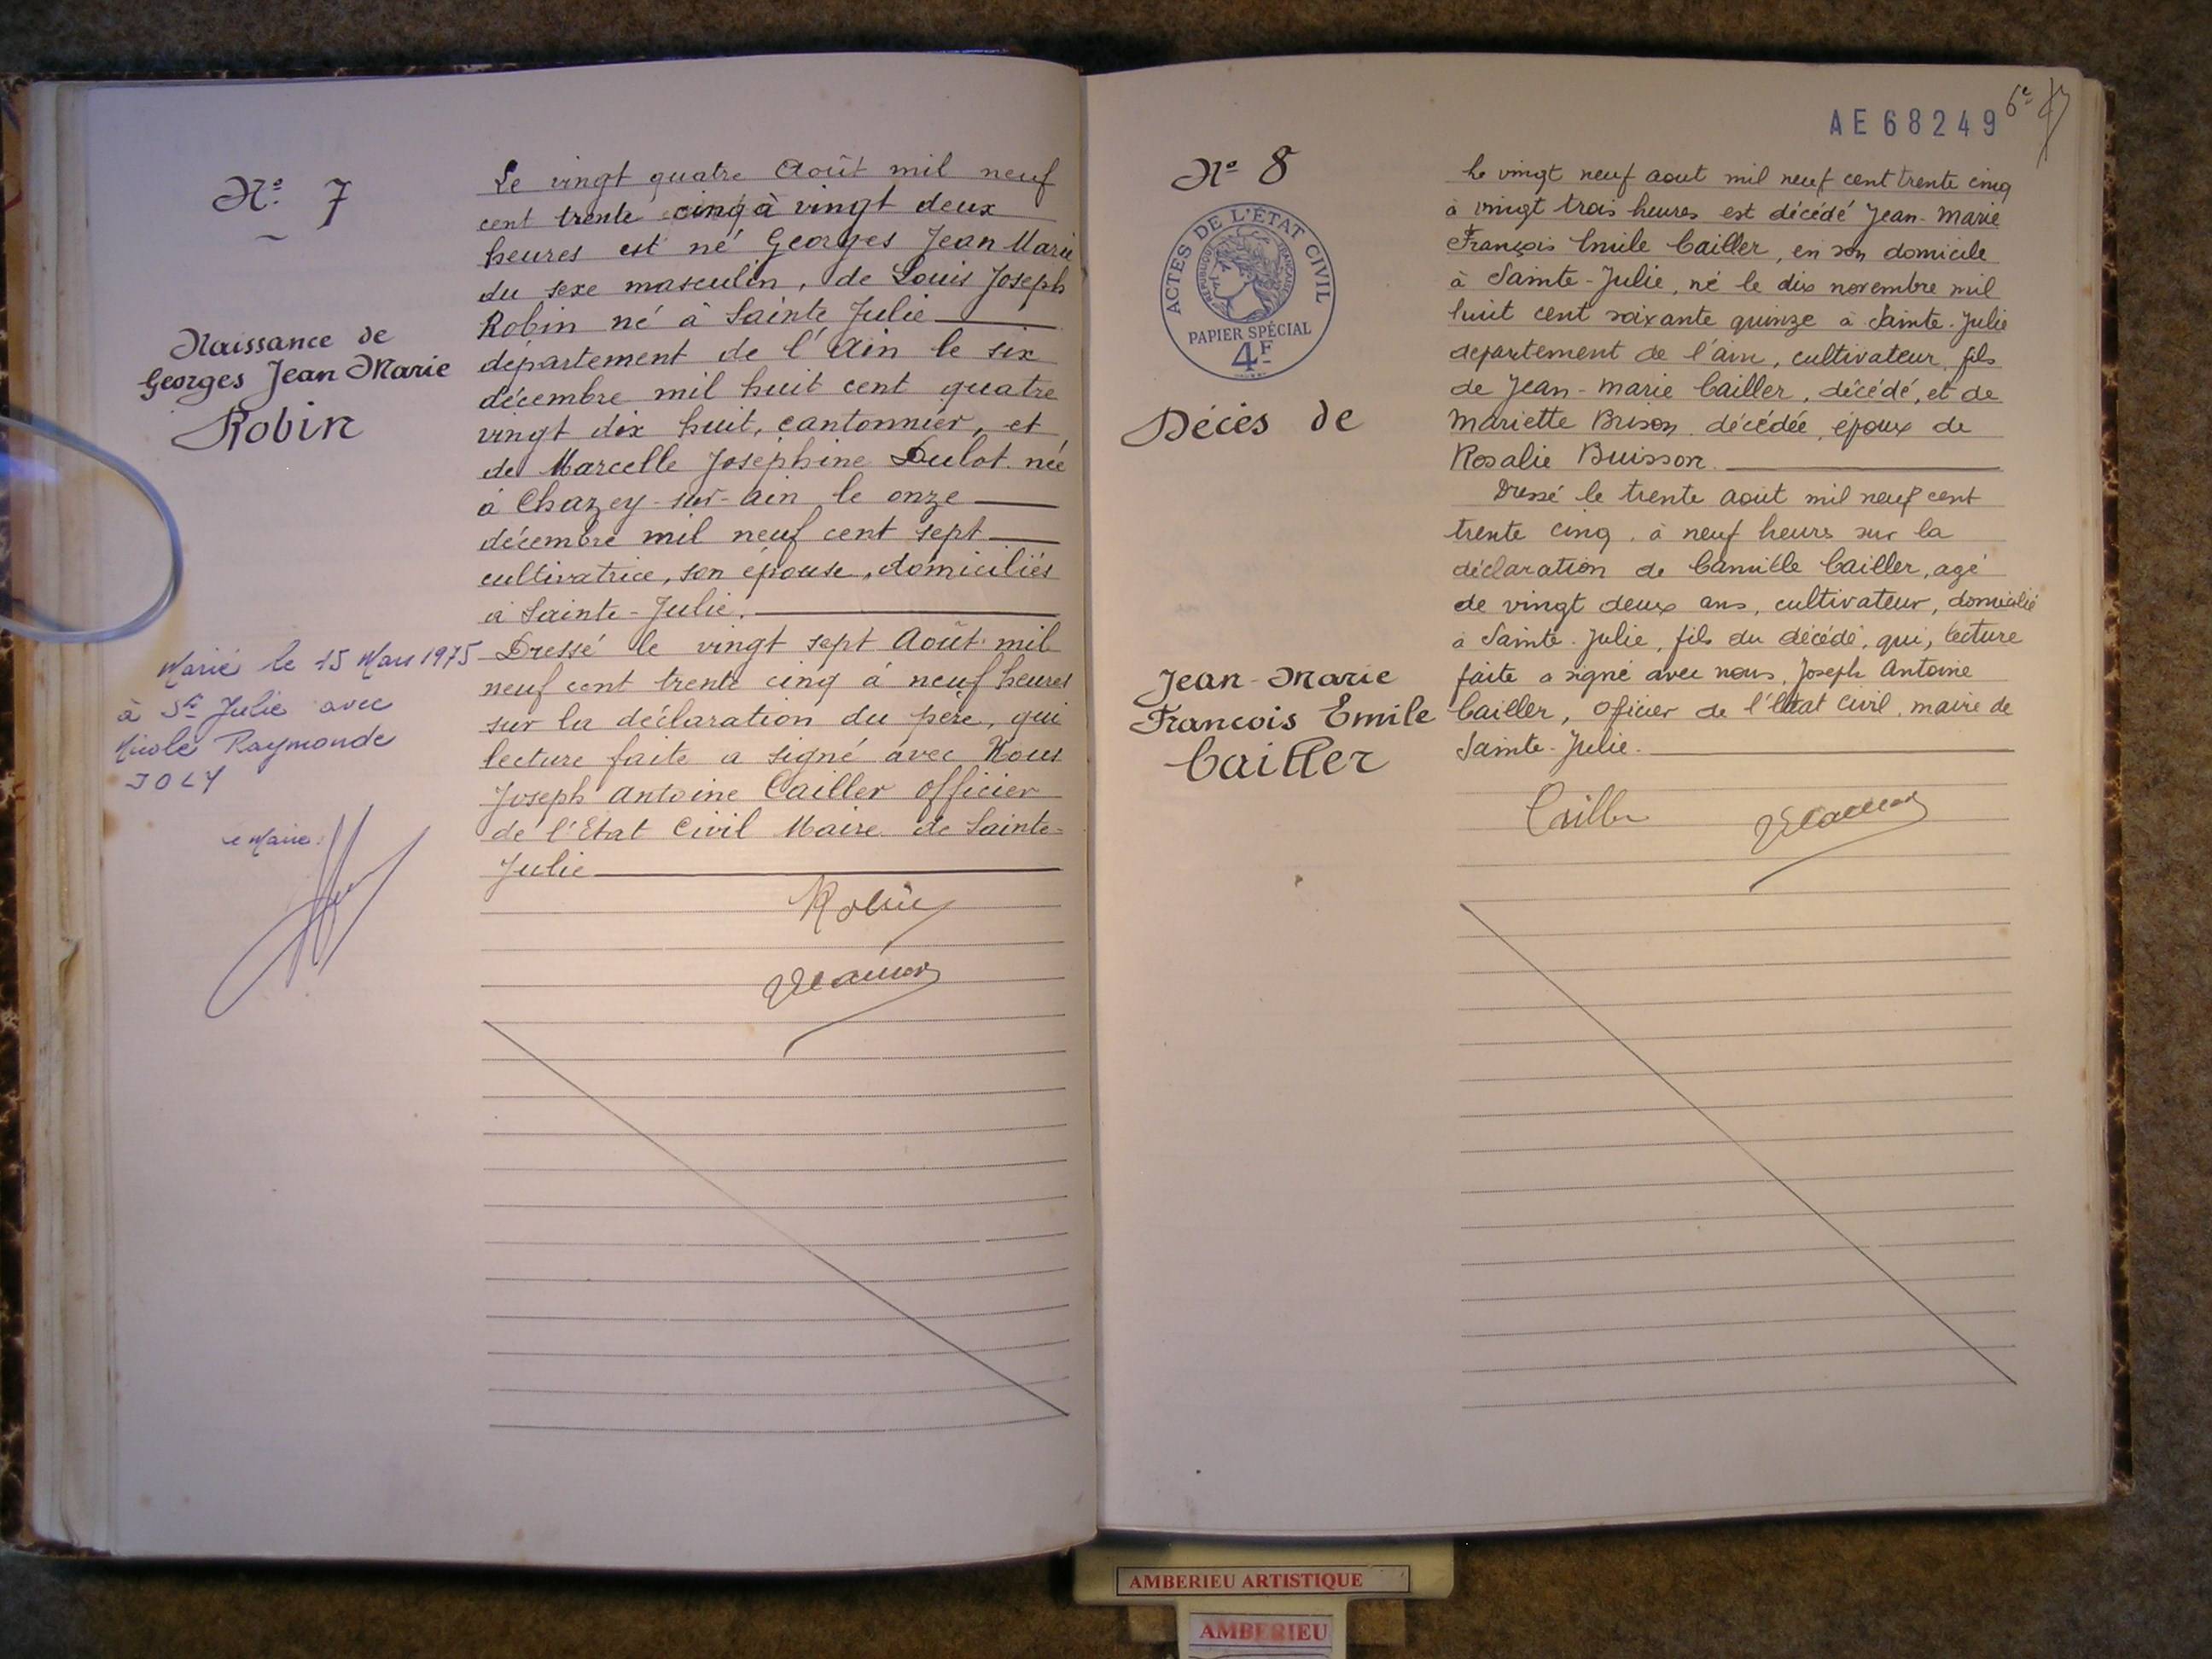 Nº 7
Naissance de
Georges Jean Marie
Robin
Marié le 15 Mars 1975
à Ste Julie avec
Nicole Raymonde
JOLY
Le Maire
Le vingt quatre Août mil neuf
cent trente cinq à vingt deux
heures est né Georges Jean Marie
du sexe masculin, de Louis Joseph
Robin né à Sainte Julie
département de l'Ain le six
décembre mil huit cent quatre
vingt dix huit, cantonnier, et
de Marcelle Joséphine Dulot née
à Chazey-sur-Ain le onze
décembre mil neuf cent sept
cultivatrice, son épouse, domiciliés
à Sainte-Julie.
Dressé le vingt sept Août mil
neuf cent trente cinq à neuf heures
sur la déclaration du père, qui
lecture faite a signé avec Nous
Joseph Antoine Cailler Officier
de l'Etat Civil Maire de Sainte-
Julie
Robin
AE68249
6e
Nº 8
ACTES DE L'ÉTAT CIVIL
REPUBLIQUE FRANCAISE
PAPIER SPÉCIAL
4F
Décès de
Jean-Marie
Francois Emile
Cailler
Le vingt neuf aout mil neuf cent trente cinq
à vingt trois heures est décédé Jean-Marie
François Emile Cailler, en son domicile
à Sainte-Julie, né le dix novembre mil
huit cent soixante quinze à Sainte-Julie
departement de l'ain, cultivateur, fils
de Jean-Marie Cailler, décédé, et de
Mariette Brison décédée, époux de
Rosalie Buisson.
Dressé le trente aout mil neuf cent
trente cinq, à neuf heures sur la
déclaration de Camille Cailler, agé
de vingt deux ans, cultivateur, domicilié
à Sainte-Julie, fils du décédé, qui, lecture
faite a signé avec nous, Joseph Antoine
Cailler, Officier de l'Etat Civil, maire de
Sainte-Julie.
Cailler
AMBERIEU ARTISTIQUE
AMBERIEU